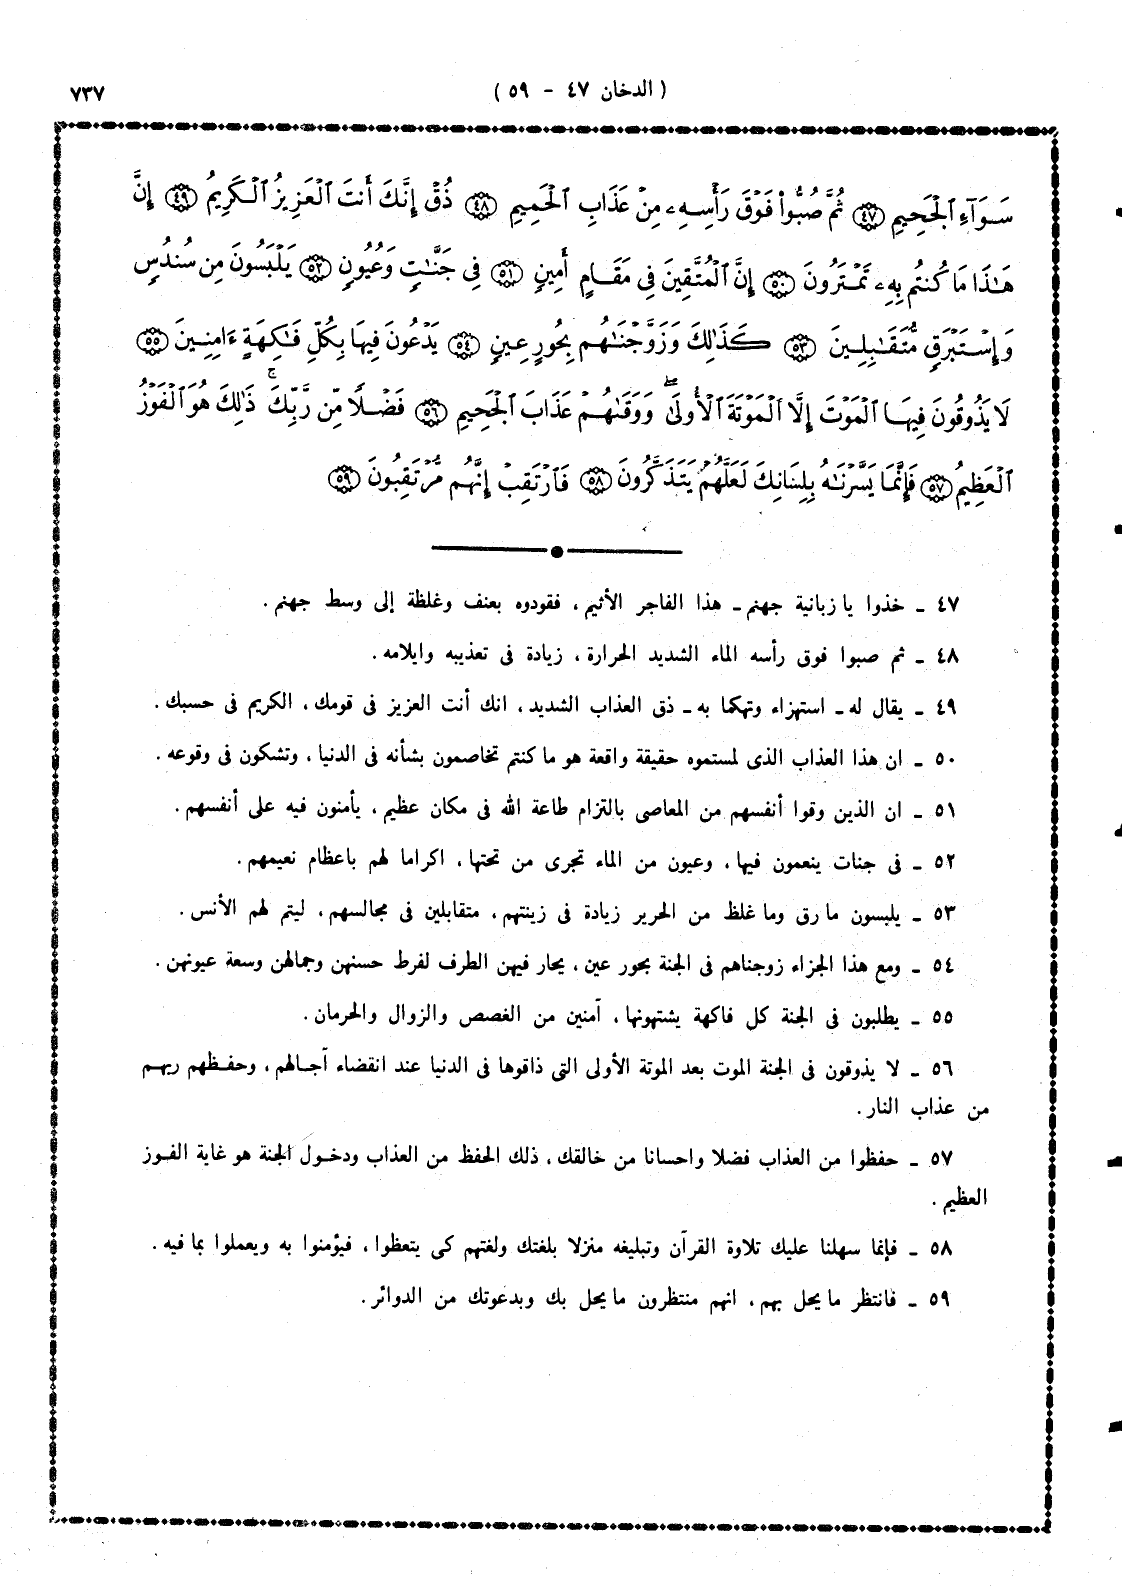 ( الدخان ٤٧ - ٥٩ )
٧٣٧
سَوَآءِ ٱلْجَحِيمِ ۝٤٧ ثُمَّ صُبُّوا۟ فَوْقَ رَأْسِهِۦ مِنْ عَذَابِ ٱلْحَمِيمِ ۝٤٨ ذُقْ إِنَّكَ أَنتَ ٱلْعَزِيزُ ٱلْكَرِيمُ ۝٤٩ إِنَّ
هَـٰذَا مَا كُنتُم بِهِۦ تَمْتَرُونَ ۝٥٠ إِنَّ ٱلْمُتَّقِينَ فِى مَقَامٍ أَمِينٍ ۝٥١ فِى جَنَّـٰتٍ وَعُيُونٍ ۝٥٢ يَلْبَسُونَ مِن سُندُسٍ
وَإِسْتَبْرَقٍ مُّتَقَـٰبِلِينَ ۝٥٣ كَذَٰلِكَ وَزَوَّجْنَـٰهُم بِحُورٍ عِينٍ ۝٥٤ يَدْعُونَ فِيهَا بِكُلِّ فَـٰكِهَةٍ ءَامِنِينَ ۝٥٥
لَا يَذُوقُونَ فِيهَا ٱلْمَوْتَ إِلَّا ٱلْمَوْتَةَ ٱلْأُولَىٰ ۖ وَوَقَىٰهُمْ عَذَابَ ٱلْجَحِيمِ ۝٥٦ فَضْلًا مِّن رَّبِّكَ ۚ ذَٰلِكَ هُوَ ٱلْفَوْزُ
ٱلْعَظِيمُ ۝٥٧ فَإِنَّمَا يَسَّرْنَـٰهُ بِلِسَانِكَ لَعَلَّهُمْ يَتَذَكَّرُونَ ۝٥٨ فَٱرْتَقِبْ إِنَّهُم مُّرْتَقِبُونَ ۝٥٩
٤٧ ـ خذوا يا زبانية جهنم ـ هذا الفاجر الأثيم ، فقودوه بعنف وغلظة إلى وسط جهنم .
٤٨ ـ ثم صبوا فوق رأسه الماء الشديد الحرارة ، زيادة فى تعذيبه وايلامه .
٤٩ ـ يقال له ـ استهزاء وتهكما به ـ ذق العذاب الشديد ، انك أنت العزيز فى قومك ، الكريم فى حسبك .
٥٠ ـ ان هذا العذاب الذى لمستموه حقيقة واقعة هو ما كنتم تخاصمون بشأنه فى الدنيا ، وتشكون فى وقوعه .
٥١ ـ ان الذين وقوا أنفسهم من المعاصى بالتزام طاعة الله فى مكان عظيم ، يأمنون فيه على أنفسهم .
٥٢ ـ فى جنات ينعمون فيها ، وعيون من الماء تجرى من تحتها ، اكراما لهم باعظام نعيمهم .
٥٣ ـ يلبسون ما رق وما غلظ من الحرير زيادة فى زينتهم ، متقابلين فى مجالسهم ، ليتم لهم الأنس .
٥٤ ـ ومع هذا الجزاء زوجناهم فى الجنة بحور عين ، يحار فيهن الطرف لفرط حسنهن وجمالهن وسعة عيونهن .
٥٥ ـ يطلبون فى الجنة كل فاكهة يشتهونها ، آمنين من الغصص والزوال والحرمان .
٥٦ ـ لا يذوقون فى الجنة الموت بعد الموتة الأولى التى ذاقوها فى الدنيا عند انقضاء آجالهم ، وحفظهم ربهم
من عذاب النار .
٥٧ ـ حفظوا من العذاب فضلا واحسانا من خالقك ، ذلك الحفظ من العذاب ودخول الجنة هو غاية الفوز
العظيم .
٥٨ ـ فإنما سهلنا عليك تلاوة القرآن وتبليغه منزلا بلغتك ولغتهم كى يتعظوا ، فيؤمنوا به ويعملوا بما فيه .
٥٩ ـ فانتظر ما يحل بهم ، انهم منتظرون ما يحل بك وبدعوتك من الدوائر .